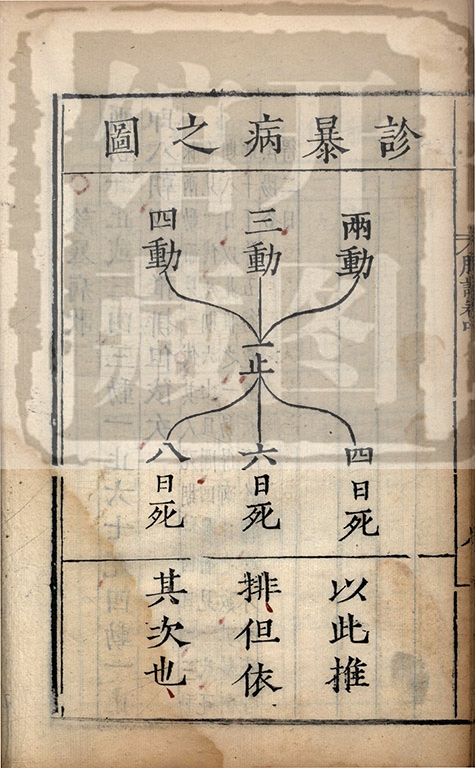 診暴病之圖
兩動
三動
四動
一止
四日死
六日死
八日死
以此推
排但依
其次也